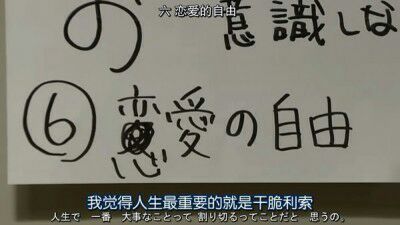 六 恋爱的自由
の 意識しな
⑥恋愛の自由
我觉得人生最重要的就是干脆利索
人生で 一番 大事なことって 割り切るってことだと 思うの。